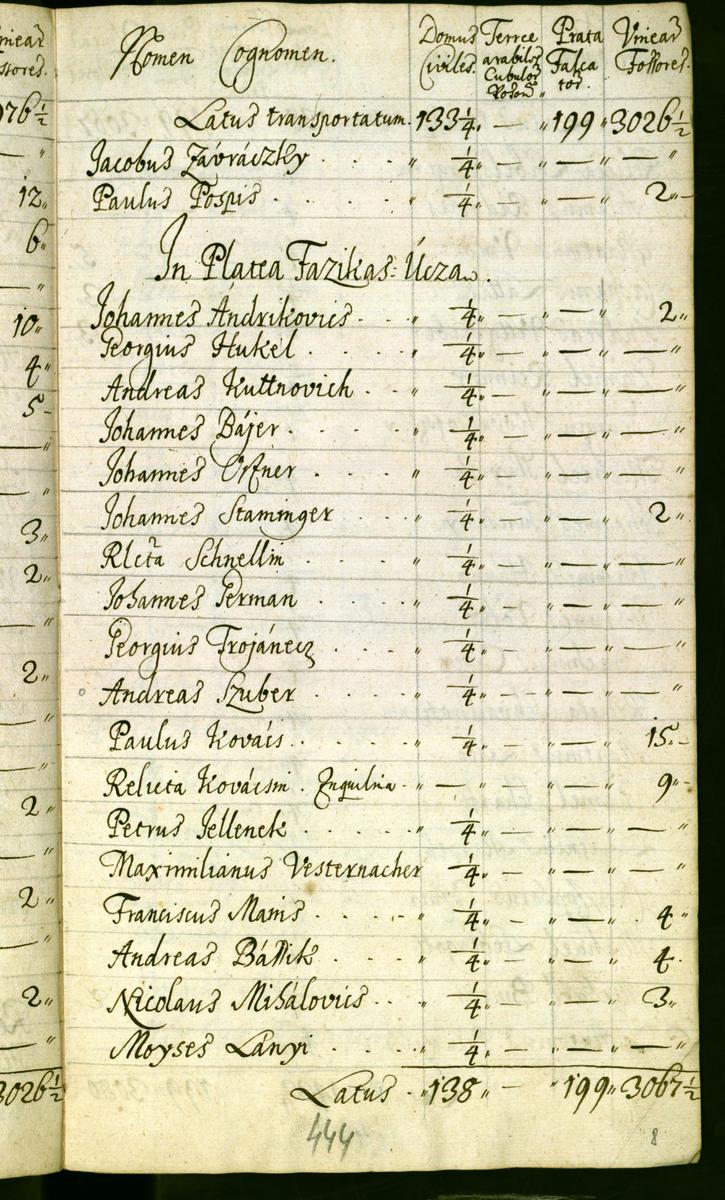 inear
ssores.
976 1/2
— "
12 "
6 "
— "
10 "
4 "
5 -
— "
— "
3 "
2 "
— "
2 "
— "
— "
2 "
— "
2 "
— "
2 "
— "
3026 1/2
Nomen Cognomen. Domus Civiles. Terræ arabiles Cubulor Poson. Prata Falcator. Vinear Fossores.
Latus transportatum. 133 1/4 " — " 199 " 3026 1/2
Jacobus Závráczky . . . " 1/4 " — " — " — "
Paulus Pospis . . . . " 1/4 " — " — " 2 " -
In Platea Fazikas=Úcza.
Johannes Andrikovics . . . " 1/4 " — " — " 2 "
Georgius Hukel . . . . " 1/4 " — " — " — "
Andreas Kuttnovich . . . " 1/4 " — " — " — "
Johannes Bájer . . . . " 1/4 " — " — " — "
Johannes Orfner . . . . " 1/4 " — " — " — "
Johannes Staminger . . . " 1/4 " — " — " 2 "
Rlcta Schnellin . . . . " 1/4 " — " — " — "
Johannes German . . . . " 1/4 " — " — " — "
Georgius Trojánecz . . . " 1/4 " — " — " — "
Andreas Szuber . . . . " 1/4 " — " — " — "
Paulus Kovács . . . . " 1/4 " — " — " 15 " -
Relicta Kovácsin . Inquilina . " — " — " — " 9 " -
Petrus Jellenek . . . . " 1/4 " — " — " — "
Maximilianus Vesternacher 1/4 " — " — " — "
Franciscus Manis . . . . " 1/4 " — " — " 4 "
Andreas Bassik . . . . " 1/4 " — " — " 4 .
Nicolaus Mihálovics . . " 1/4 " — " — " 3 "
Moyses Lányi . . . . " 1/4 " — " — " — "
Latus . " 138 " — " 199 " 3067 1/2
444
8